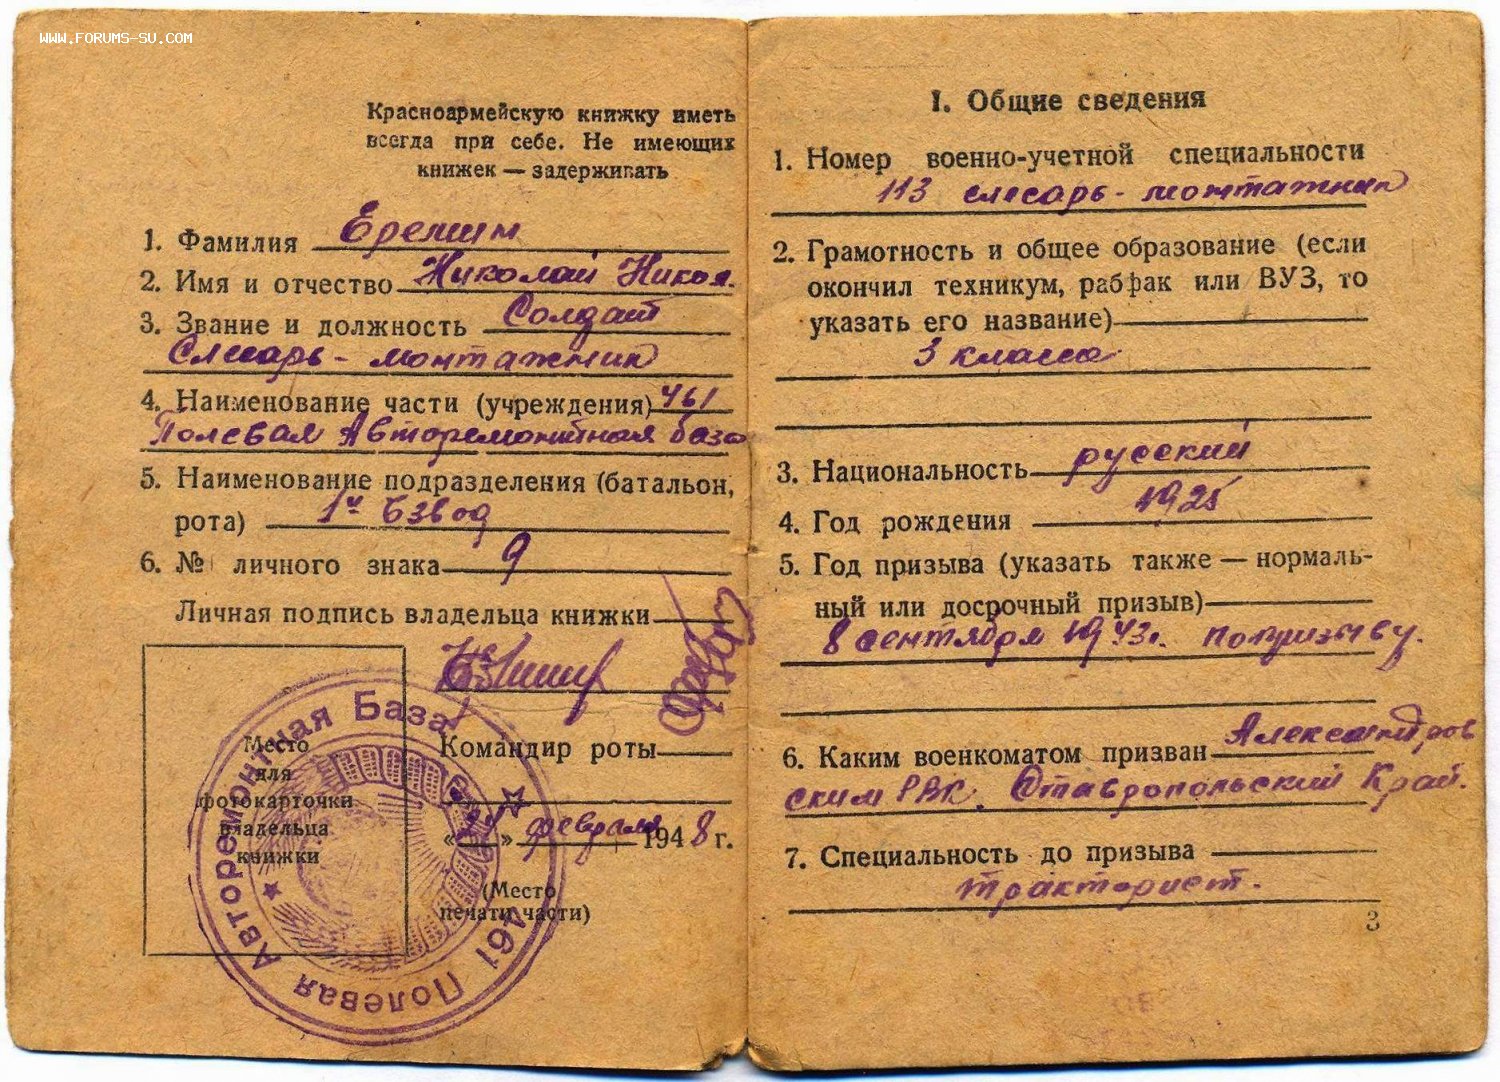 WWW.FORUMS-SU.COM
Красноармейскую книжку иметь
всегда при себе. Не имеющих
книжек — задерживать
1. Фамилия Еремин
2. Имя и отчество Николай Никол.
3. Звание и должность Солдат
Слесарь-монтажник
4. Наименование части (учреждения) 461
Полевая Авторемонтная база
5. Наименование подразделения (батальон,
рота) 1й Взвод
6. № личного знака 9
Личная подпись владельца книжки
Командир роты
Место
для
фотокарточки
владельца
книжки
« » февраля 1948 г.
(Место
печати части)
461 Полевая Авторемонтная База
I. Общие сведения
1. Номер военно-учетной специальности
113 слесарь-монтажник
2. Грамотность и общее образование (если
окончил техникум, рабфак или ВУЗ, то
указать его название)
3 класса
3. Национальность русский
4. Год рождения 1925
5. Год призыва (указать также — нормаль-
ный или досрочный призыв)
8 сентября 1943г. по призыву.
6. Каким военкоматом призван Александров
ским РВК. Ставропольский Край.
7. Специальность до призыва
тракторист.
3